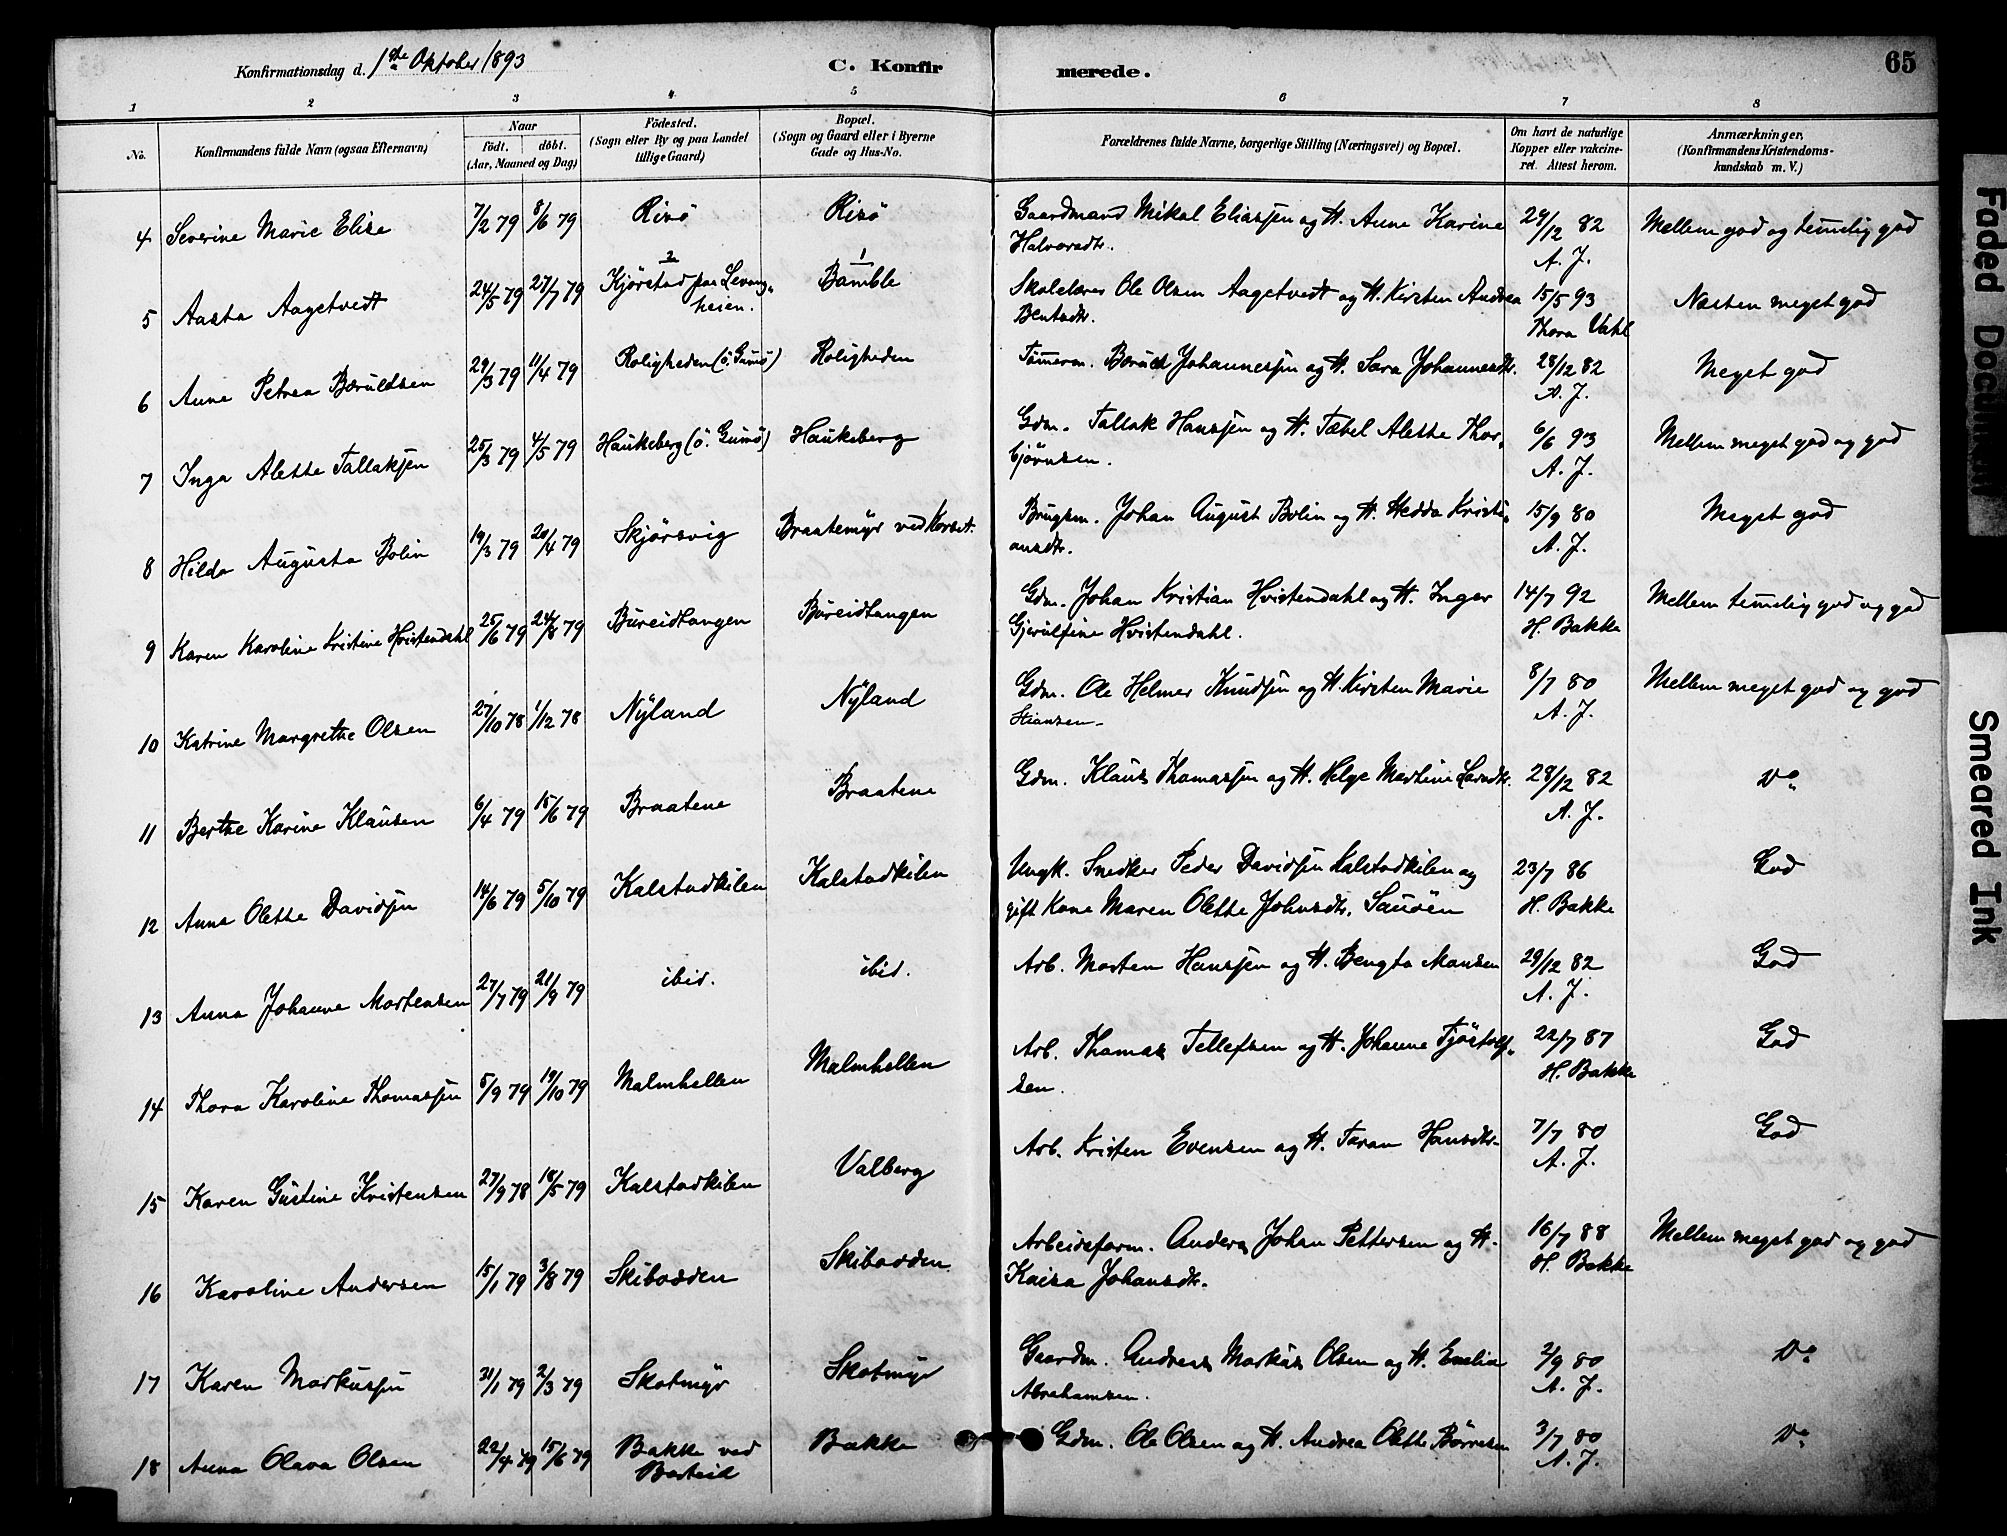 Konfirmationsdag d. 1ste Oktober 1893
C. Konfirmerede.
65
1 2 3 4 5 6 7 8
No.
Konfirmandens fulde Navn (ogsaa Efternavn)
Naar
födt. döbt.
(Aar, Maaned og Dag)
Födested.
(Sogn eller By og paa Landet
tillige Gaard)
Bopæl.
(Sogn og Gaard eller i Byerne
Gade og Hus-No.
Forældrenes fulde Navne, borgerlige Stilling (Næringsvei) og Bopæl.
Om havt de naturlige
Kopper eller vakcine-
ret. Attest herom.
Anmærkninger,
(Konfirmandens Kristendoms-
kundskab m. V.)
4 Severine Marie Elise 7/2 79 8/6 79 Risö Risö Gaardmand Mikal Eliassen og H. Anne Karine 29/12 82 Mellem god og temmelig god
Halvorsdtr. A. J.
5 Aasta Aagetvedt 24/5 79 27/7 79 Kjörstad paa Levang- 2 Bamble 1 Skolelærer Ole Olsen Aagetvedt og H. Kirsten Andrea 15/5 93 Næsten meget god
heien. Bentsdtr. Thora Vahl
6 Anne Petrea Bæruldsen 29/3 79 11/4 79 Roligheden (ö. Gumö) Roligheden Tömmerm. Bæruld Johannessen og H. Sara Johannesdtr. 28/12 82 Meget god
A. J.
7 Inga Alette Tallaksen 25/3 79 4/5 79 Haukeberg (ö. Gumö) Haukeberg Gdm. Tallak Hanssen og H. Tabel Alette Thor- 6/6 93 Mellem meget god og god
björnsen. A. J.
8 Hilda Augusta Bolin 19/3 79 20/4 79 Skjörsvig Braatemyr ved Korset. Brugsm. Johan August Bolin og H. Hedda Kristi- 15/9 80 Meget god
ansdtr. A. J.
9 Karen Karoline Kristine Hvistendahl 25/6 79 24/8 79 Bureidtangen Bureidtangen Gdm. Johan Kristian Hvistendahl og H. Inger 14/7 92 Mellem temmelig god og god
Gjerulfine Hvistendahl. H. Bakke
10 Katrine Margrethe Olsen 27/10 78 1/12 78 Nyland Nyland Gdm. Ole Helmer Knudsen og H. Kirsten Marie 8/7 80 Mellem meget god og god
Stiansen. A. J.
11 Berthe Karine Klausen 6/4 79 15/6 79 Braatene Braatene Gdm. Klaus Thomassen og H. Helge Martine Larsdtr. 28/12 82 Do
A. J.
12 Anne Olette Davidsen 14/6 79 5/10 79 Kalstadkilen Kalstadkilen Ungk. Snedker Peder Davidsen Kalstadkilen og 23/7 86 God
gift Kone Maren Olette Johnsdtr. Sauöen H. Bakke
13 Anna Johanne Mortensen 27/7 79 21/9 79 ibid. ibid. Arb. Morten Hanssen og H. Bengta Monsen 29/12 82 God
A. J.
14 Thora Karoline Thomassen 5/9 79 19/10 79 Malmhellen Malmhellen Arb. Thomas Tellefsen og H. Johanne Tjöstolf- 22/7 87 God
sen. H. Bakke
15 Karen Gustine Kristensen 27/9 78 18/5 79 Kalstadkilen Valberg Arb. Kristen Evensen og H. Taran Hansdtr. 7/7 80 God
A. J.
16 Karoline Andersen 15/1 79 3/8 79 Skibodden Skibodden Arbeidsform. Anders Johan Pettersen og H. 16/7 88 Mellem meget god og god
Kaisa Johansdtr. H. Bakke
17 Karen Markussen 31/1 79 2/3 79 Skotmyr Skotmyr Gaardm. Andreas Markus Olsen og H. Emelia 2/9 80 Do
Abrahamsen. A. J.
18 Anna Olava Olsen 22/4 79 15/6 79 Bakke ved Bakke Gdm. Ole Olsen og H. Andrea Olette Börresen 3/7 80 Do
Barteid A. J.
Faded Document
Smeared Ink